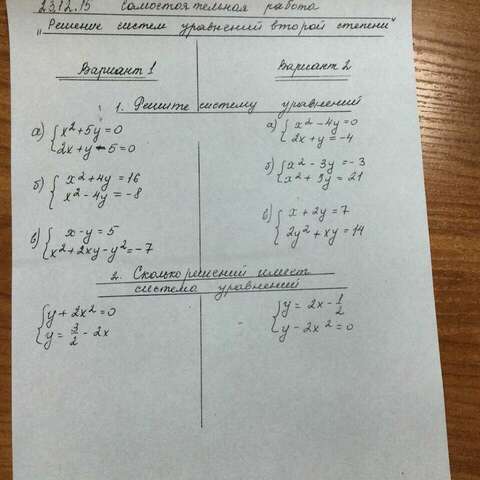 23.12.15 Самостоятельная работа
„Решение систем уравнений второй степени"
Вариант 1
Вариант 2
1. Решите систему уравнений
а) { x² + 5y = 0
2x + y - 5 = 0
б) { x² + 4y = 16
x² - 4y = -8
в) { x - y = 5
x² + 2xy - y² = -7
а) { x² - 4y = 0
2x + y = -4
б) { x² - 3y = -3
x² + 3y = 21
в) { x + 2y = 7
2y² + xy = 14
2. Сколько решений имеет
система уравнений
{ y + 2x² = 0
y = 3/2 - 2x
{ y = 2x - 1/2
y - 2x² = 0